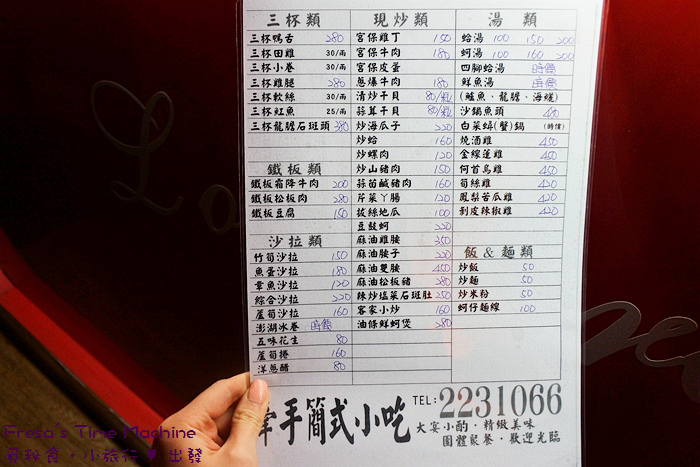 三杯類
三杯鴨舌 280
三杯田雞 30/兩
三杯小卷 30/兩
三杯雞腿 280
三杯軟絲 30/兩
三杯魟魚 25/兩
三杯龍膽石斑頭 380
鐵板類
鐵板霜降牛肉 200
鐵板松板肉 280
鐵板豆腐 150
沙拉類
竹筍沙拉 150
魚蛋沙拉 180
章魚沙拉 120
綜合沙拉 220
蘆筍沙拉 160
澎湖冰卷 時價
五味花生 80
蘆筍捲 160
洋蔥醋 80
現炒類
宮保雞丁 150
宮保牛肉 180
宮保皮蛋
蔥爆牛肉 180
清炒干貝 80/粒
蒜茸干貝 80/粒
炒海瓜子 220
炒蛤 160
炒螺肉 120
炒山豬肉 150
蒜苗鹹豬肉 160
芹菜丫腸 120
拔絲地瓜 100
豆豉蚵 220
麻油雞腰 350
麻油腰子 220
麻油雙腰 450
麻油松板豬 280
辣炒塩菜石斑肚 250
客家小炒 160
油條鮮蚵煲 280
湯 類
蛤湯 100 150 200
蚵湯 100 160 200
四腳蛤湯 時價
鮮魚湯 時價
(鱸魚、龍膽、海鱺)
沙鍋魚頭 450
白菜蟳(蟹)鍋 (時價)
燒酒雞 450
金線蓮雞 450
何首烏雞 450
筍絲雞 420
鳳梨苦瓜雞 420
剝皮辣椒雞 420
飯&麵類
炒飯 50
炒麵 50
炒米粉 50
蚵仔麵線 100
牽手簡式小吃
TEL:2231066
大宴小酌・精緻美味
團體聚餐・歡迎光臨
Fresa's Time Machine
尋找食・小旅行♥出發